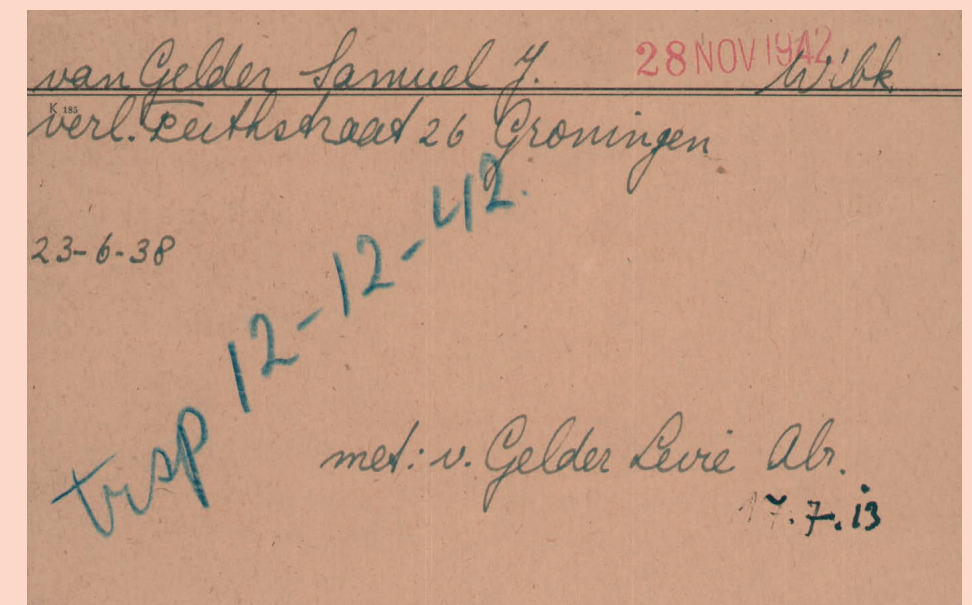 van Gelder Samuel J. 28 NOV 1942 Wibk.
K 185
verl. Peithstraat 26 Groningen
23-6-38
trsp 12-12-42.
met: v. Gelder Levie Abr.
17.7.13